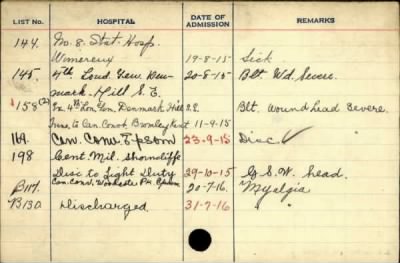 LIST No. HOSPITAL DATE OF ADMISSION REMARKS
144. No. 8. Stat. Hosp.
Wimereux 19-8-15 Sick
145. 4th Lond. Gen. Den-
20-8-15 Blt Wd. Severe.
mark Hill S. E.
158(2) Ex 4th Lon. Gen. Denmark Hill S.E. Blt. wound head Severe.
Trans. to Can. Conv. Bromley Kent 11-9-15
169. Can. Conv. Epsom 23-9-15 Disc.
198 Cent. Mil. Shorncliffe
Disc to Light Duty 29-10-15 G. S. W. head.
B117. Can. Conv. Woodcote Pk. Epsom 20-7-16 Myalgia
B130 Discharged 31-7-16 "